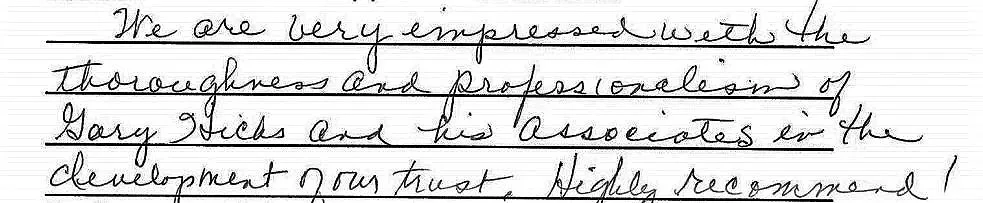 We are very impressed with the
thoroughness and professionalism of
Gary Hicks and his associates in the
development of our trust. Highly recommend!